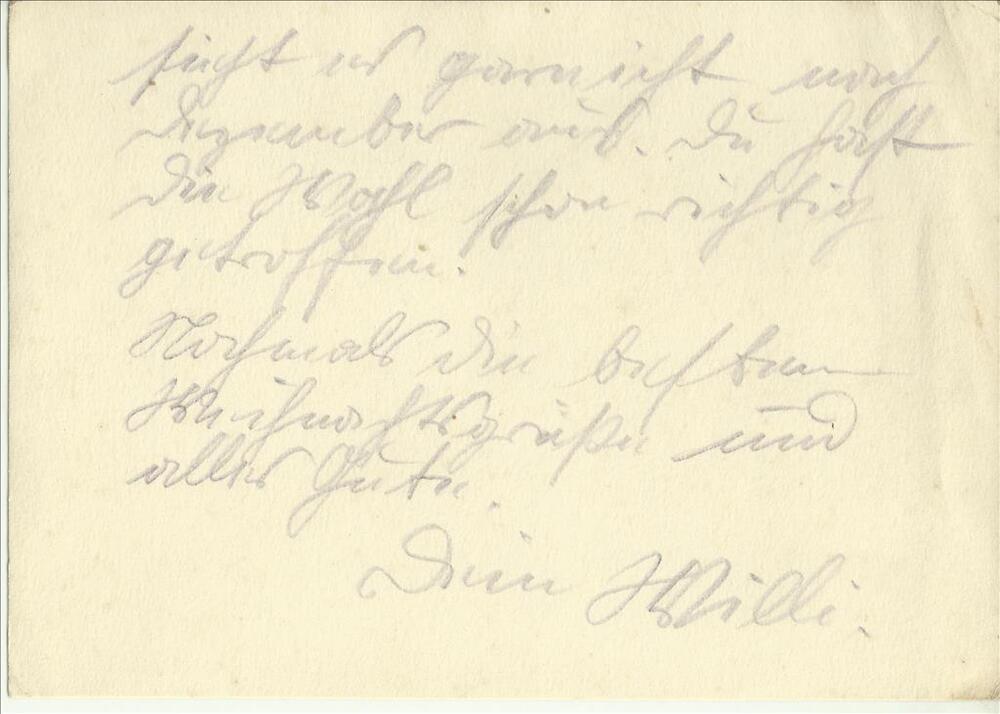 sieht es garnicht nach
Dezember aus. Du hast
die Wahl schon richtig
getroffen.
Nochmals die besten
Weihnachtsgrüße und
alles Gute.
Dein Willi.